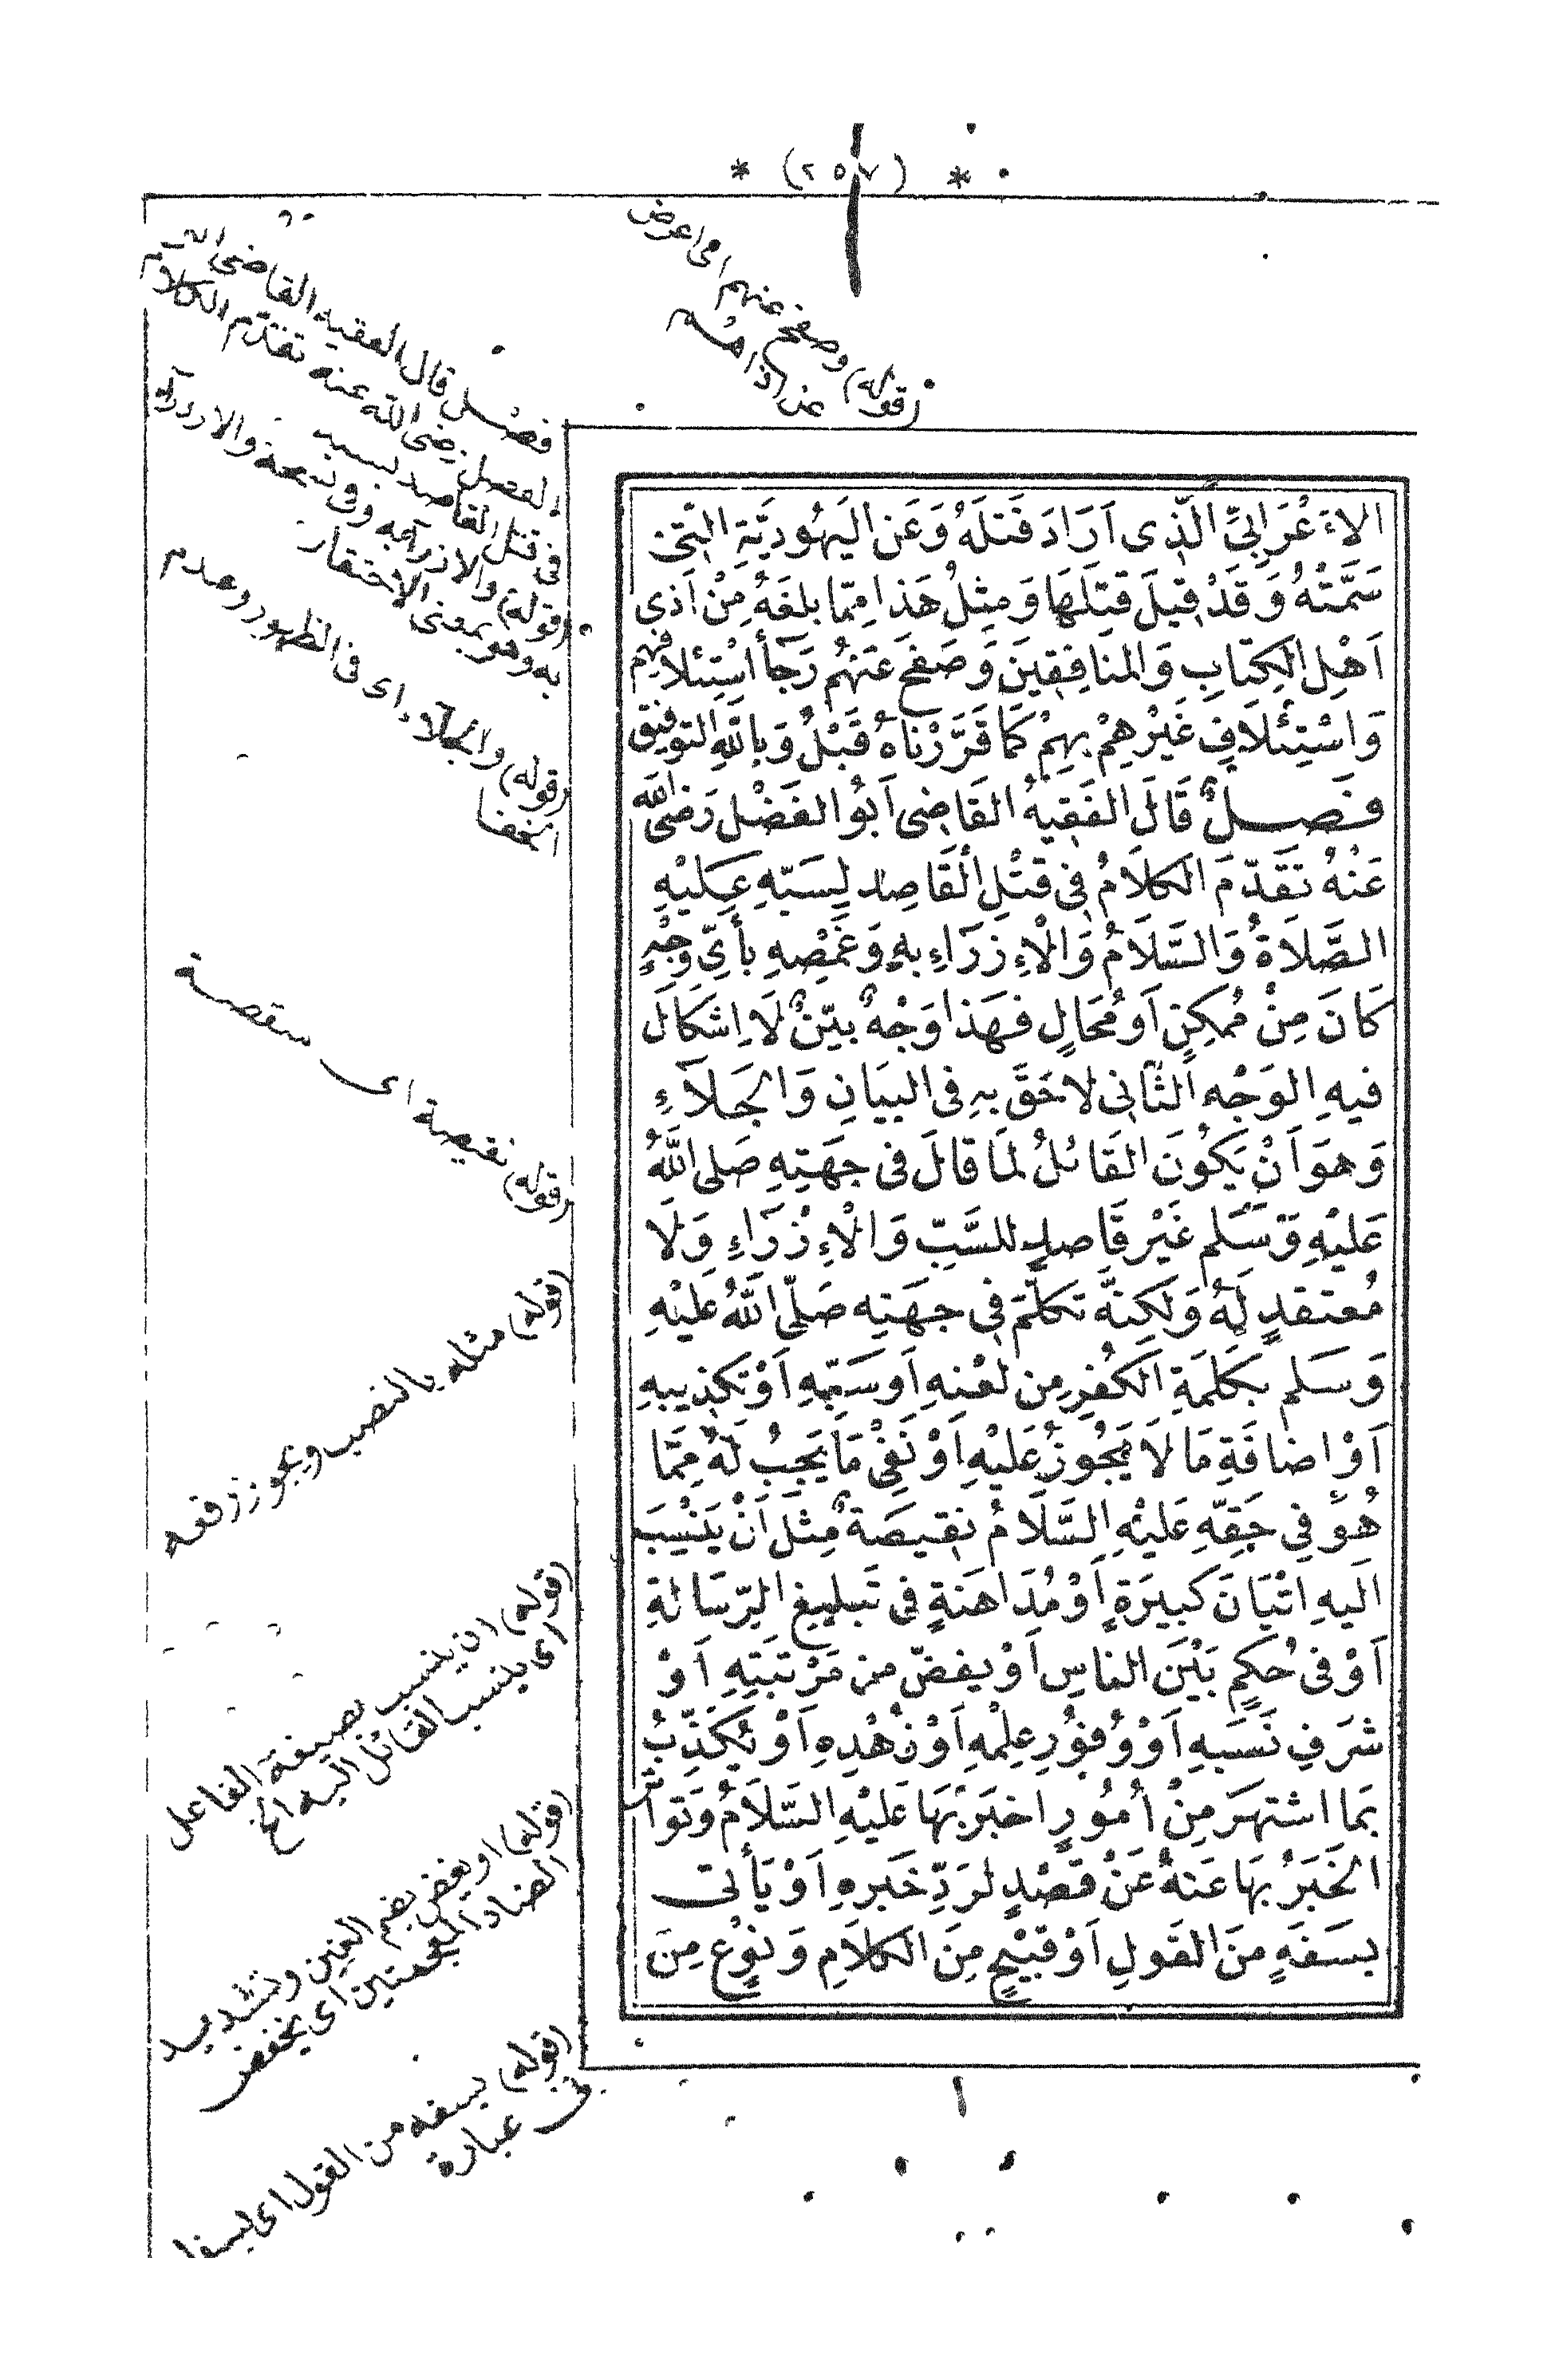 * (٢٥٧) *
(قوله) وصفح عنهم اى اعرض
عن اذاهم
الاَعْرَابِىِّ الَّذِى اَرَادَ قَتْلَهُ وَعَنِ الْيَهُودِيَّةِ الَّتِى
سَمَّتْهُ وَقَدْ قِيلَ قَتَلَهَا وَمِثْلُ هَذا مِمَّا بلغَهُ مِنْ اَذى
اَهْلِ الكِتَابِ وَالمنَافِقِينَ وَصَفَحَ عَنْهُم رَجَآأ اسْتِئلافِهِم
وَاسْتِئلَافِ غَيْرِهِمْ بِهِمْ كَمَا قَرَّرْنَاهُ قَبْلُ وَبِاللهِ التوفيق
فَصـلٌ قَالَ الفَقِيهُ القَاضِى اَبُو الفَضْلِ رَضِىَ الله
عَنْهُ تَقَدَّمَ الكَلَامُ فِى قَتْلِ الْقَاصِدِ لِسَبِّهِ عَلَيْهِ
الصَّلَاةُ وَالسَّلَامُ وَالْاِزْرَاءِ بِهِ وَغَمْصِهِ بِأَىِّ وَجْهٍ
كَانَ مِنْ مُمْكِنٍ اَو مُحَالٍ فَهَذا وَجْهٌ بيّنٌ لَا اِشكَالَ
فيهِ الوَجْه الثَّانِى لاحَقَ بِهِ فِى البيَانِ وَالجَلَآءِ
وَهوَ اَنْ يَكُونَ القَائلُ لِمَا قالَ فى جهَتِهِ صَلى اللهُ
عَليْهِ وَسَلم غَيْرَ قَاصدٍ للسَّبِّ وَالْاِزْرَاءِ وَلَا
مُعتقدٍ لَهُ وَلَكِنَّهُ تكَلَّمَ فى جهَتِه صَلّى اللهُ عَليْهِ
وَسَلم بكَلمَةِ الكُفرِ مِن لعْنِهِ اَو سَبِّهِ اَوْ تكذِيبِهِ
اَوْ اضَافَةِ مَا لَا يَجُوزُ عَليْهِ اَوْ نَفْىِ مَا يَجِبُ لَهُ مِمَّا
هُوَ فِى حَقِّهِ عَليْهِ السَّلَامُ نقيصَةٌ مِثلَ اَنْ يَنْسِبَ
اليهِ اتْيَانَ كبيرَةٍ اَوْ مُدَاهَنَةٍ فى تَبليغِ الرّسَالةِ
اَوْ فى حُكمٍ بَيْنَ الناسِ اَوْ يغضّ من مَرْتبَتِهِ اَوْ
شرَفِ نَسَبِهِ اَوْ وُفُورِ عِلمِهِ اَوْ زُهْدِهِ اَوْ يُكَذِّبُ
بمَا اشتهرَ مِنْ اُمُورٍ اخبَرَ بهَا عَليْهِ السّلَامُ وَتواتر
الخَبَرُ بهَا عَنهُ عَنْ قصْدٍ لرَدِّ خَبرهِ اَوْ يَأتى
بسَفَهٍ منَ القَولِ اَوْ قبيْحٍ مِنَ الكلَامِ وَنوْعٍ مِنَ
فصـل قال الفقيه القاضى
الفصل رضى الله عنه تقدّم الكلام
فى قتل القاصد لسبـ
(قوله) والازرآء به وفى نسخة والاردرآء
به وهو بمعنى الاحتقار
(قوله) والجلآء اى فى الظهور وعدم
الخفا
(قوله) نقيصة اى منقصة
(قوله) مثله بالنصب ويجوز رفعه
(قوله) ان ينسب بصيغة الفاعل
اى ينسب القائل اليه الخ
(قوله) او يغض بضم الغين وتشديد
الضاد المعجمتين اى يخفض
(قوله) بسفه من القول اى بسفا
فى عبارة